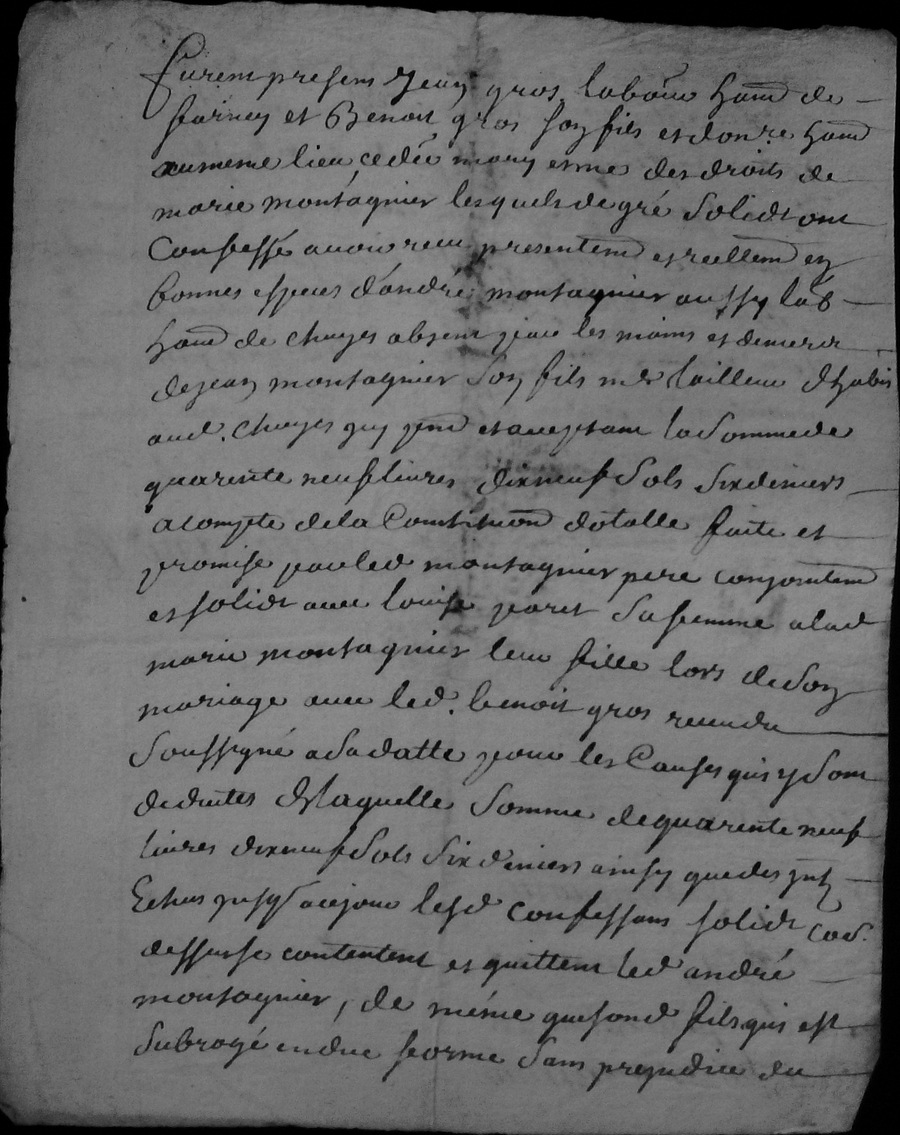 furent presens Jean gros labour habnt de
farnay et Benoit gros son fils et donre habnt
au meme lieu, ce dér mary et me des droits de
marie montagnier lesquels de gré solidt ont
Confessé avoir receu presentemt et reellemt en
bonnes especes d'andré montagnier aussy lab
habnt de chuyes absent par les mains et deniers
de jean montagnier son fils me tailleur d'habis
aud. Chuyes cy pnt et acceptant la somme de
quarente neuf livres dix neuf sols six deniers
acompte de la Constitution dotalle faite et
promise par led montagnier pere conjointemt
et solidt avec louise paret sa femme a lad
marie montagnier leur fille lors de son
mariage avec led. benoit gros receu du
soussigné a sa datte pour les Causes qui y sont
deduites de laquelle somme de quarente neuf
livres dix neuf sols six deniers ainsy que des jnts
Echus jusqu'a ce jour lesd confessans solidt cod.
dessusse contentent et quittent led andré
montagnier, de même que sond fils qui est
subrogé en due forme sans prejudice du